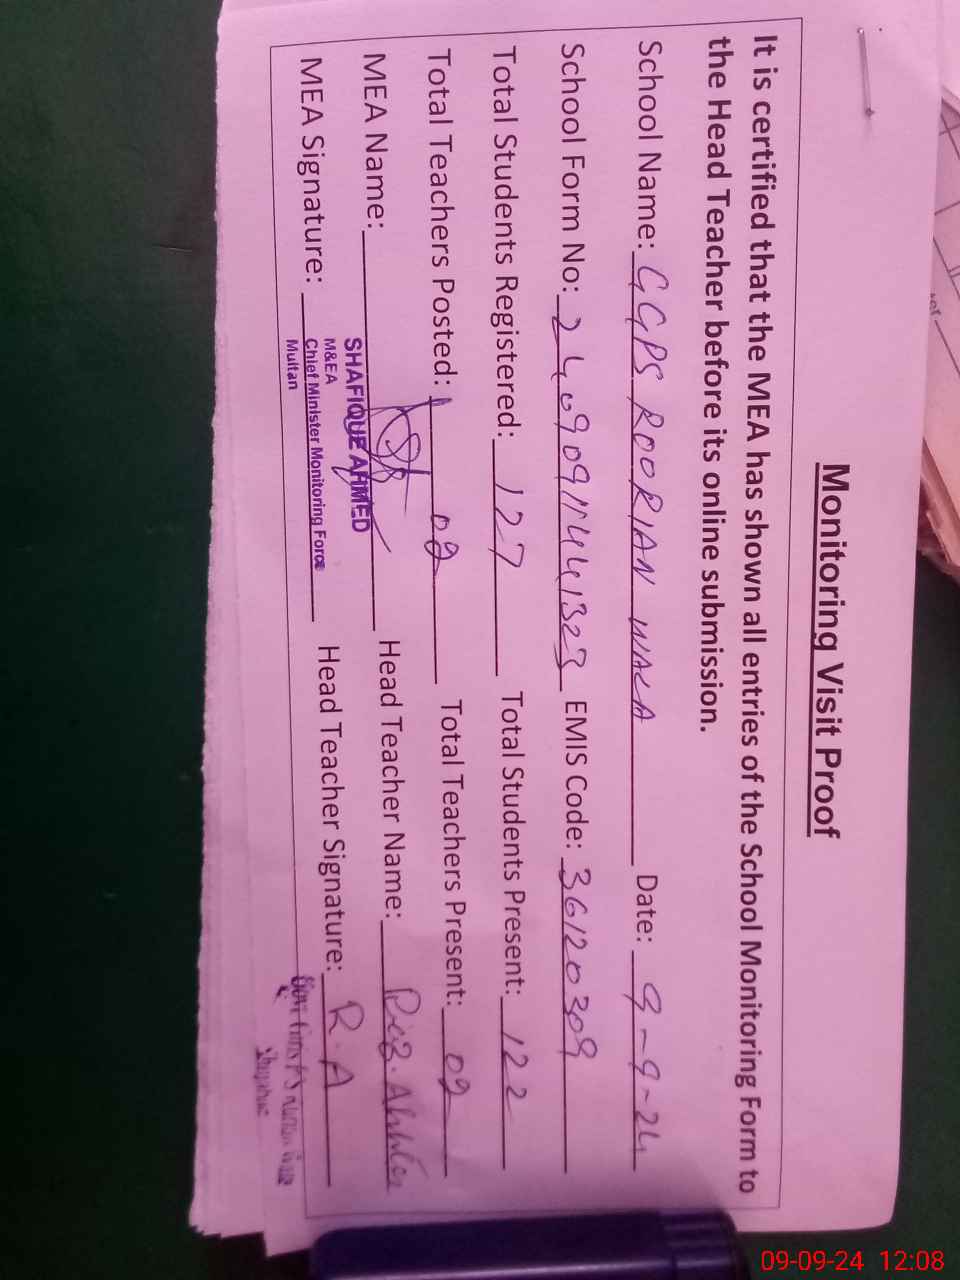 Monitoring Visit Proof
It is certified that the MEA has shown all entries of the School Monitoring Form to
the Head Teacher before its online submission.
School Name: GGPS ROORIAN WALA Date: 9-9-24
School Form No: EMIS Code: 36120309
Total Students Registered: 127 Total Students Present: 122
Total Teachers Posted: 02 Total Teachers Present: 02
MEA Name: Head Teacher Name:
SHAFIQUE AHMED
M&EA
Chief Minister Monitoring Force
Multan
MEA Signature: Head Teacher Signature: R.A
09-09-24 12:08